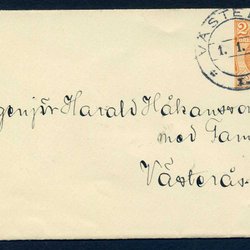 VÄSTE
1. 1.
2
genjör Harald Håkansson
med Fam
Västerås